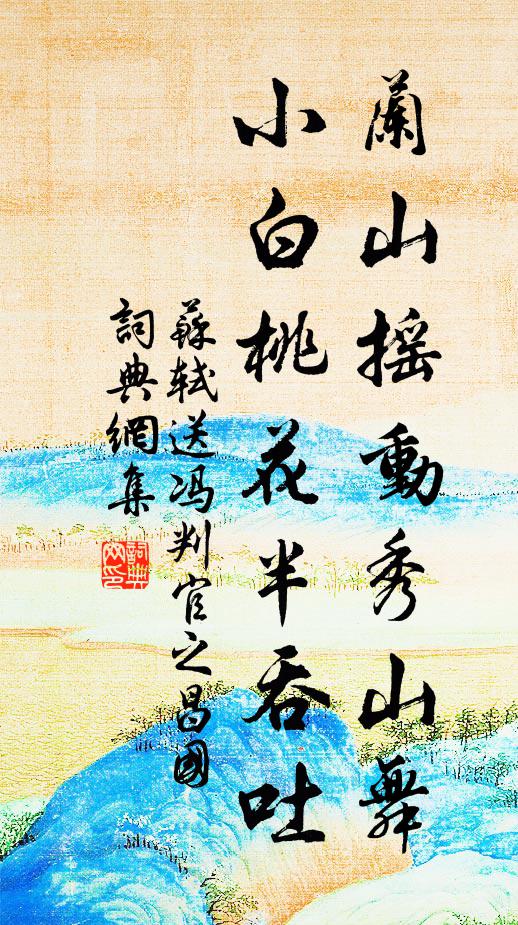 蘭山搖動秀山舞
小白桃花半吞吐
蘇軾送冯判官之昌國
詞典網集
詞典网印